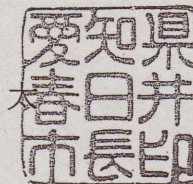 愛知県
春日井
市長印
太